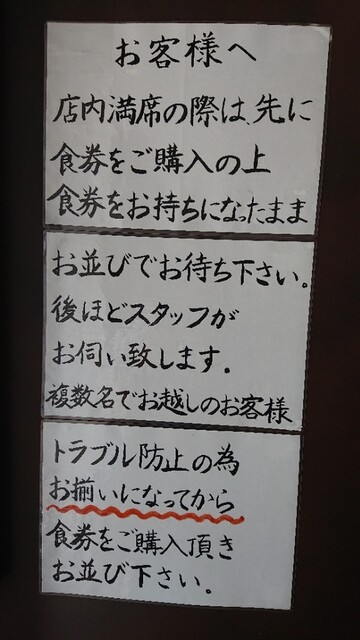 お客様へ
店内満席の際は、先に
食券をご購入の上
食券をお持ちになったまま
お並びでお待ち下さい。
後ほどスタッフが
お伺い致します。
複数名でお越しのお客様
トラブル防止の為
お揃いになってから
食券をご購入頂き
お並び下さい。